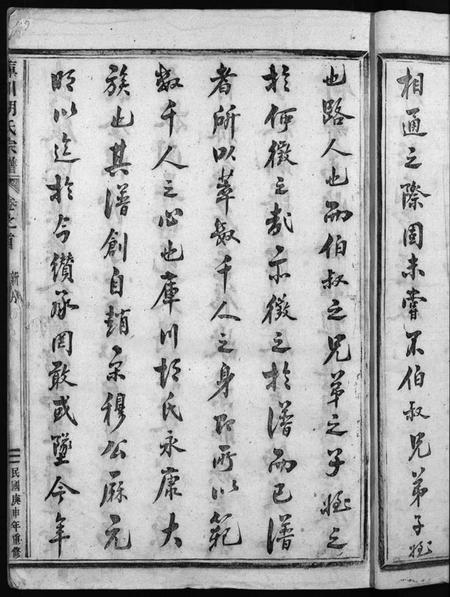 相通之際固未嘗不伯叔兄弟子姪
也路人也而伯叔之兄弟之子姪之
於何徵之哉亦徵之於譜而已譜
者所以萃數千人之身即所以範
數千人之心也庫川胡氏永康大
族也其譜創自趙宋穆公歷元
明以迄於今纘承罔敢或墜今年
庫川胡氏宗譜
卷之首
新序
民國庚申年重修